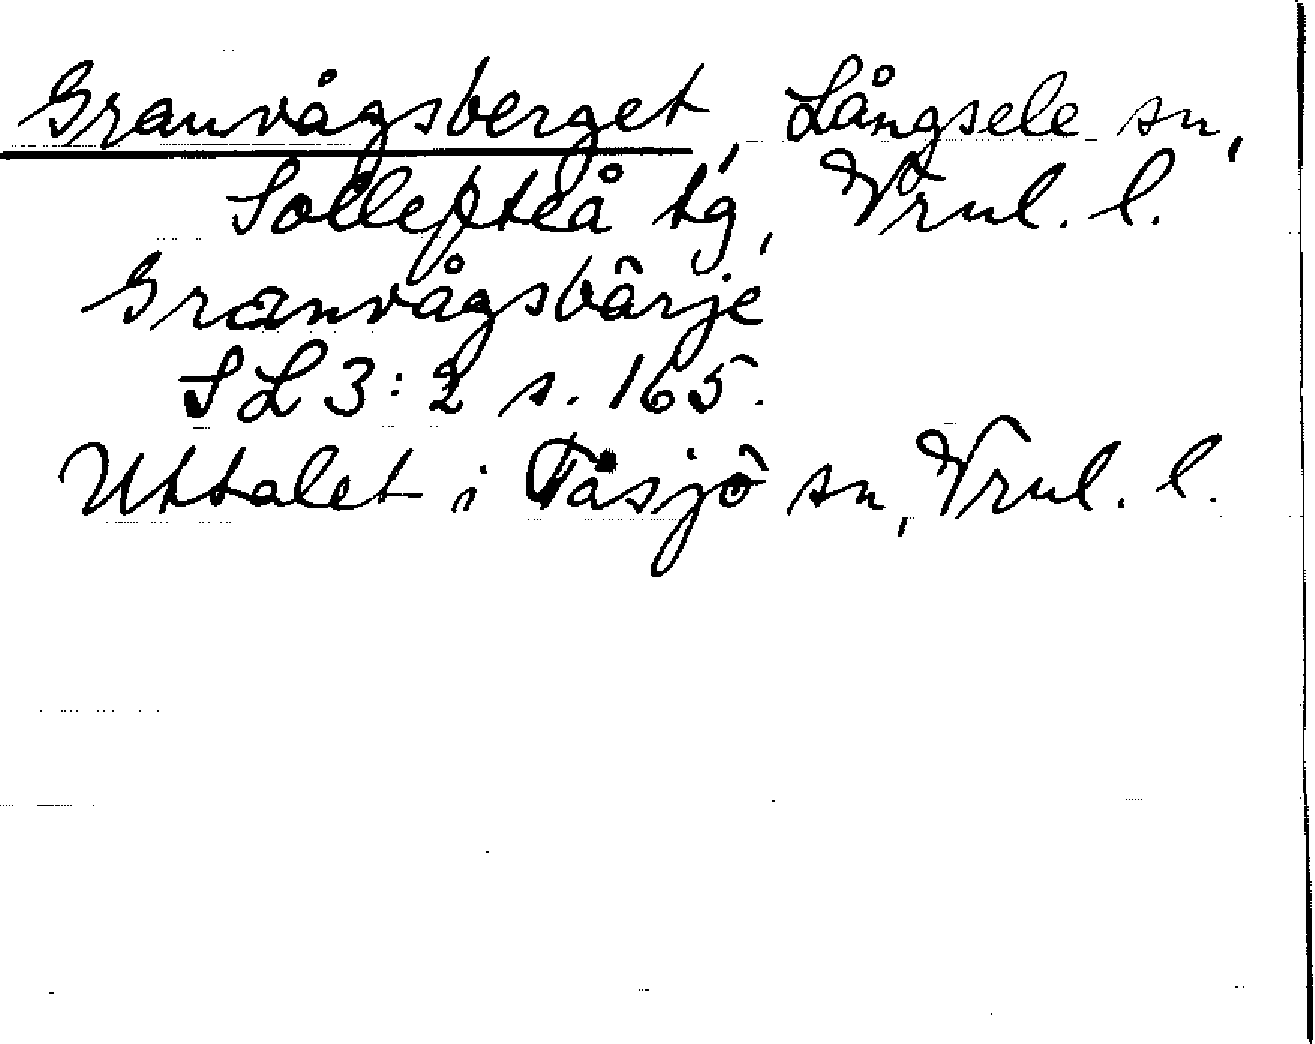 Granvågsberget, Långsele sn,
Sollefteå tg, Vrnl. l.
Granvågsbärje
SL 3:2 s. 165.
Uttalet i Tåsjö sn, Vrnl. l.